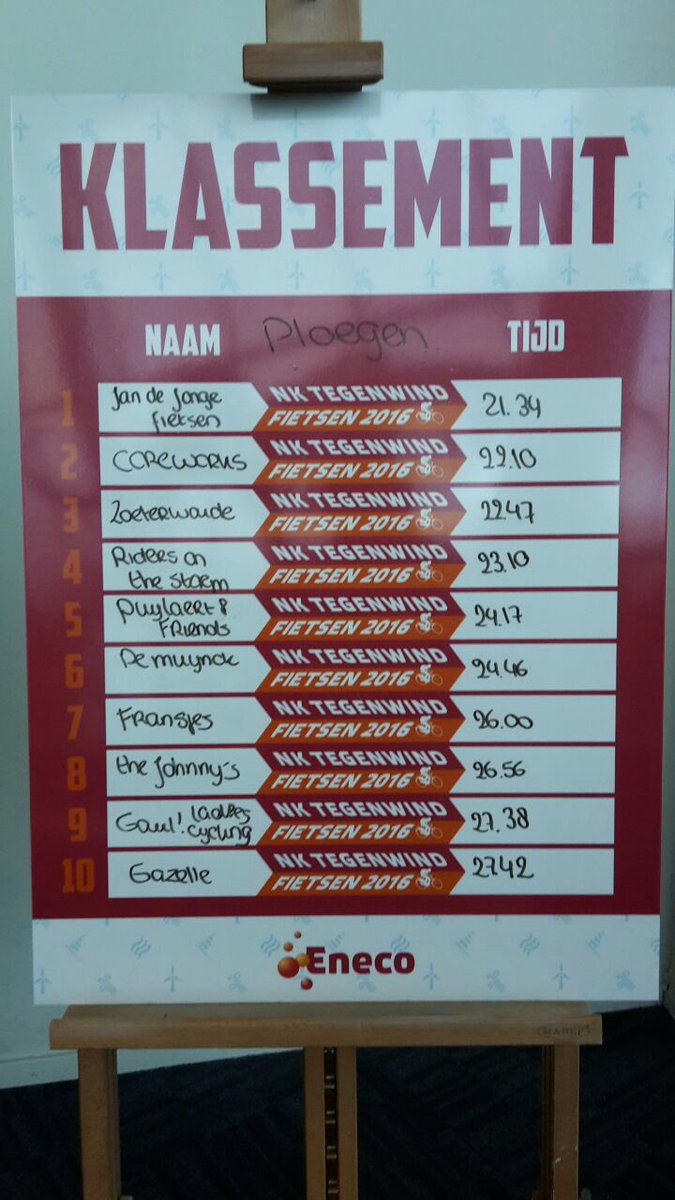 KLASSEMENT
NAAM Ploegen TIJD
1 Jan de Jonge NK TEGENWIND 21.34
fietsen FIETSEN 2016
2 COREWORKS NK TEGENWIND 22.10
FIETSEN 2016
3 Zoeterwoude NK TEGENWIND 22.47
FIETSEN 2016
4 Riders on NK TEGENWIND 23.10
the storm FIETSEN 2016
5 Puylaert & NK TEGENWIND 24.17
FRIENDS FIETSEN 2016
6 Demuynck NK TEGENWIND 24.46
FIETSEN 2016
7 Fransjes NK TEGENWIND 26.00
FIETSEN 2016
8 the Johnny's NK TEGENWIND 26.56
FIETSEN 2016
9 Gaul! Ladies NK TEGENWIND 27.38
cycling FIETSEN 2016
10 Gazelle NK TEGENWIND 27.42
FIETSEN 2016
Eneco